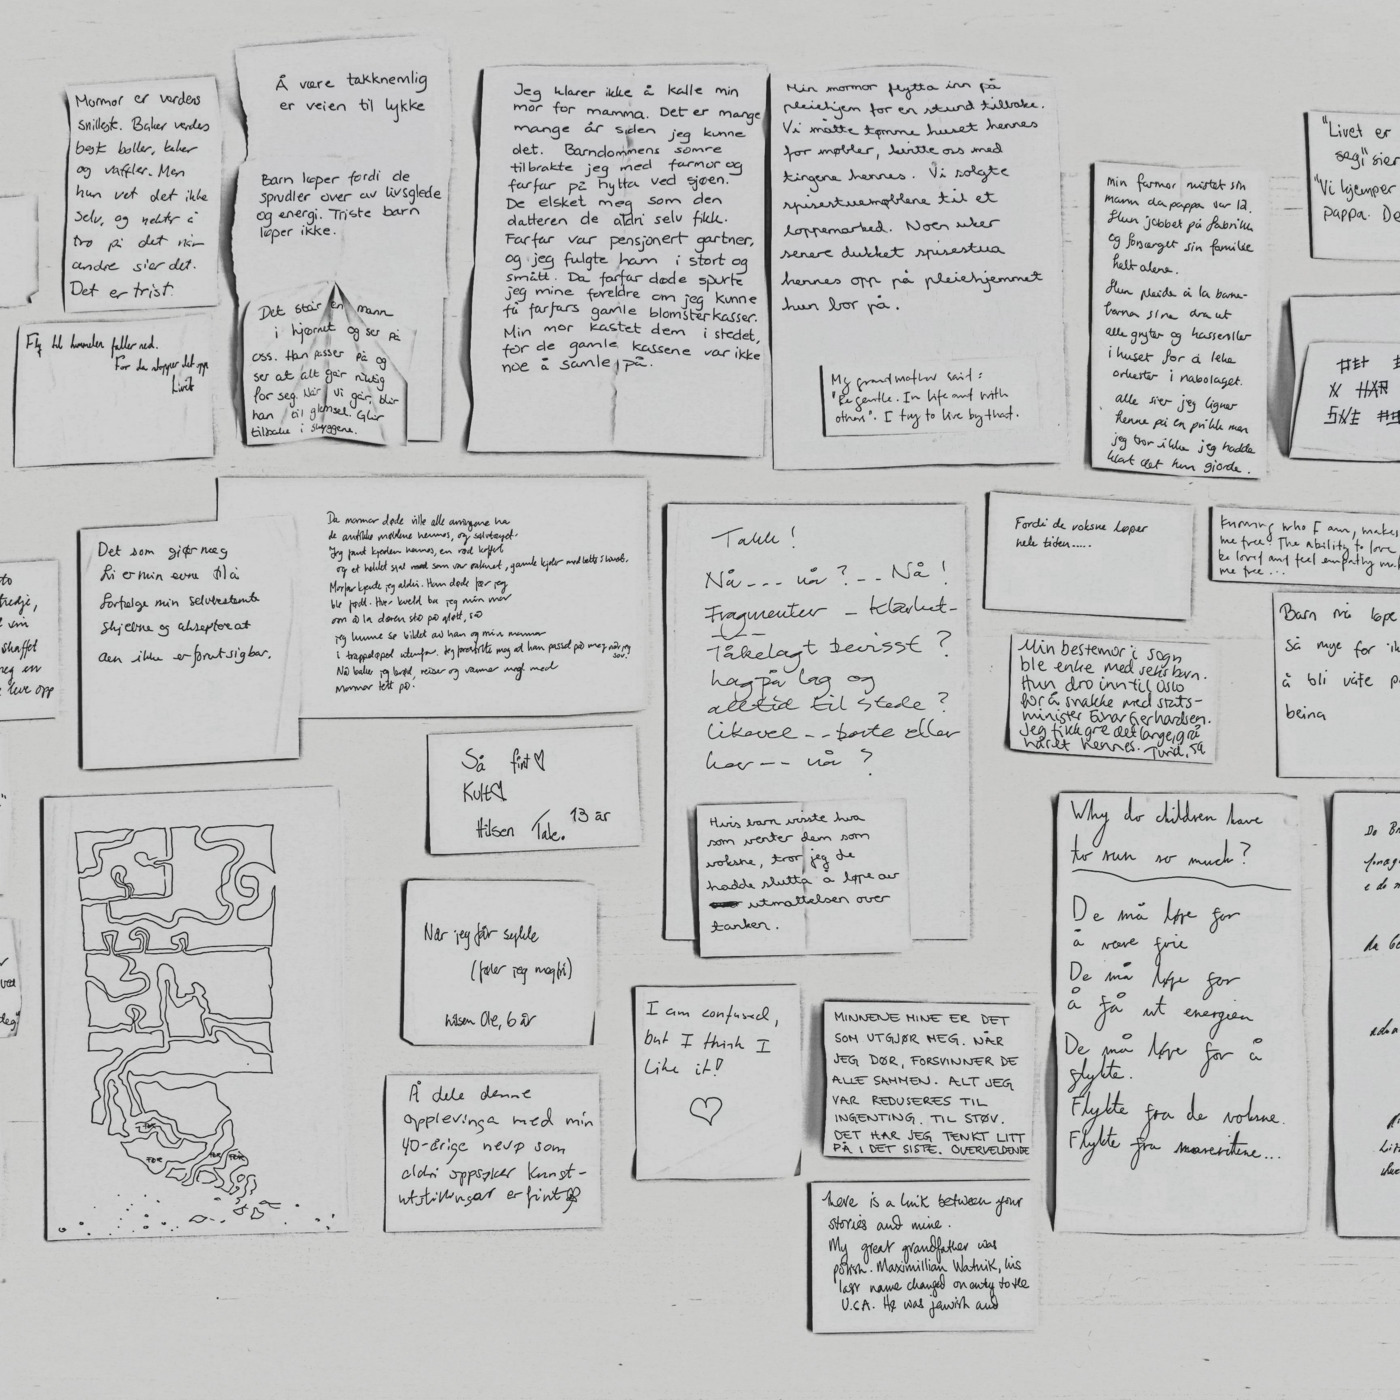 Mormor er verdens
snilleste. Baker verdens
best boller, kaker
og vafler. Men
hun vet det ikke
selv, og nekter å
tro på det når
andre sier det.
Det er trist.
Å være takknemlig
er veien til lykke
Barn løper fordi de
sprudler over av livsglede
og energi. Triste barn
løper ikke.
Det står en mann
i hjørnet og ser på
oss. Han passer på og
ser at alt går riktig
for seg. Når vi går, blir
han til glemsel. Glir
tilbake i skyggene.
Jeg klarer ikke å kalle min
mor for mamma. Det er mange
mange år siden jeg kunne
det. Barndommens somre
tilbrakte jeg med farmor og
farfar på hytta ved sjøen.
De elsket meg som den
datteren de aldri selv fikk.
Farfar var pensjonert gartner,
og jeg fulgte ham i stort og
smått. Da farfar døde spurte
jeg mine foreldre om jeg kunne
få farfars gamle blomsterkasser.
Min mor kastet dem i stedet,
for de gamle kassene var ikke
noe å samle på.
Min mormor flytta inn på
pleiehjem for en stund tilbake.
Vi måtte tømme huset hennes
for møbler, kvitte oss med
tingene hennes. Vi solgte
spisestuemøblene til et
loppemarked. Noen uker
senere dukket spisestua
hennes opp på pleiehjemmet
hun bor på.
My grandmother said:
"Be gentle. In life and with
others". I try to live by that.
Min farmor mistet sin
mann da pappa var 12.
Hun jobbet på fabrikk
og forsørget sin familie
helt alene.
Hun pleide å la barne-
barna sine dra ut
alle gryter og kasseroller
i huset for å leke
orkester i nabolaget.
alle sier jeg ligner
henne på en prikk men
jeg tror ikke jeg hadde
klart det hun gjorde.
"Livet er
seg!" sier
"Vi kjemper
pappa. De
Fly til himmelen faller ned.
For da stopper det opp
Livet
Det som gjør meg
fri er min evne til å
forfølge min selvbestemte
skjebne og akseptere at
den ikke er forutsigbar.
Da mormor døde ville alle arvingene ha
de antikke møblene hennes, og sølvtøyet.
Jeg fant kjolene hennes, en rød koffert
Morfar kjente jeg aldri. Han døde før jeg
ble født. Hver kveld ba jeg min mor
om å la døren stå på gløtt, så
jeg kunne se bildet av han og min mormor
Nå baker jeg brød, reiser og varmer meg med
mormor tett på.
Takk!
Nå --- nå? -- Nå!
Fragmenter – klarhet –
Tåkelagt bevisst?
lag på lag og
alltid til stede?
likevel -- borte eller
her -- nå?
Hvis barn visste hva
som venter dem som
voksne, tror jeg de
hadde slutta å løpe av
utmattelsen over
tanken.
Fordi de voksne løper
hele tiden.....
Knowing who I am, makes
me free. The ability to love
be loved and feel empathy make
me free...
Min bestemor i Sogn
ble enke med seks barn.
Hun dro inn til Oslo
for å snakke med stats-
minister Einar Gerhardsen.
Jeg fikk gre det lange, grå
håret hennes. Turid, 59
Barn må løpe
så mye for ik
å bli våte på
beina
Så fint ♡
Kult ♡
Hilsen Tale. 13 år
Når jeg får sykle
(føler jeg meg fri)
hilsen Ole, 6 år
Å dele denne
opplevinga med min
40-årige nevø som
aldri oppsøker kunst-
utstillingar er fint ♡
I am confused,
but I think I
like it!
♡
MINNENE MINE ER DET
SOM UTGJØR MEG. NÅR
JEG DØR, FORSVINNER DE
ALLE SAMMEN. ALT JEG
VAR REDUSERES TIL
INGENTING. TIL STØV.
DET HAR JEG TENKT LITT
PÅ I DET SISTE. OVERVELDENDE
There is a link between your
stories and mine.
My great grandfather was
polish. Maximillian Watnik, his
last name changed on entry to the
U.S.A. He was jewish and
Why do children have
to run so much?
De må løpe for
å være frie
De må løpe for
å få ut energien
De må løpe for å
flykte.
Flykte fra de voksne.
Flykte fra marerittene...